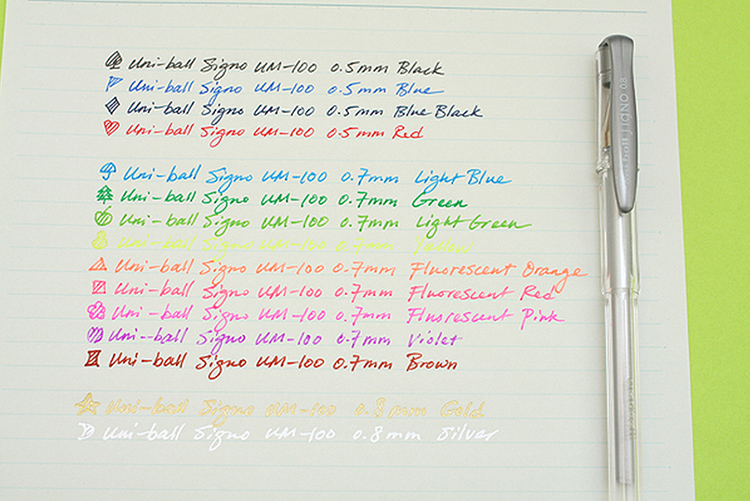 Uni-ball Signo UM-100 0.5mm Black
Uni-ball Signo UM-100 0.5mm Blue
Uni-ball Signo UM-100 0.5mm Blue Black
Uni-ball Signo UM-100 0.5mm Red
Uni-ball Signo UM-100 0.7mm Light Blue
Uni-ball Signo UM-100 0.7mm Green
Uni-ball Signo UM-100 0.7mm Light Green
Uni-ball Signo UM-100 0.7mm Yellow
Uni-ball Signo UM-100 0.7mm Fluorescent Orange
Uni-ball Signo UM-100 0.7mm Fluorescent Red
Uni-ball Signo UM-100 0.7mm Fluorescent Pink
Uni-ball Signo UM-100 0.7mm Violet
Uni-ball Signo UM-100 0.7mm Brown
Uni-ball Signo UM-100 0.8mm Gold
Uni-ball Signo UM-100 0.8mm Silver
SIGNO 08